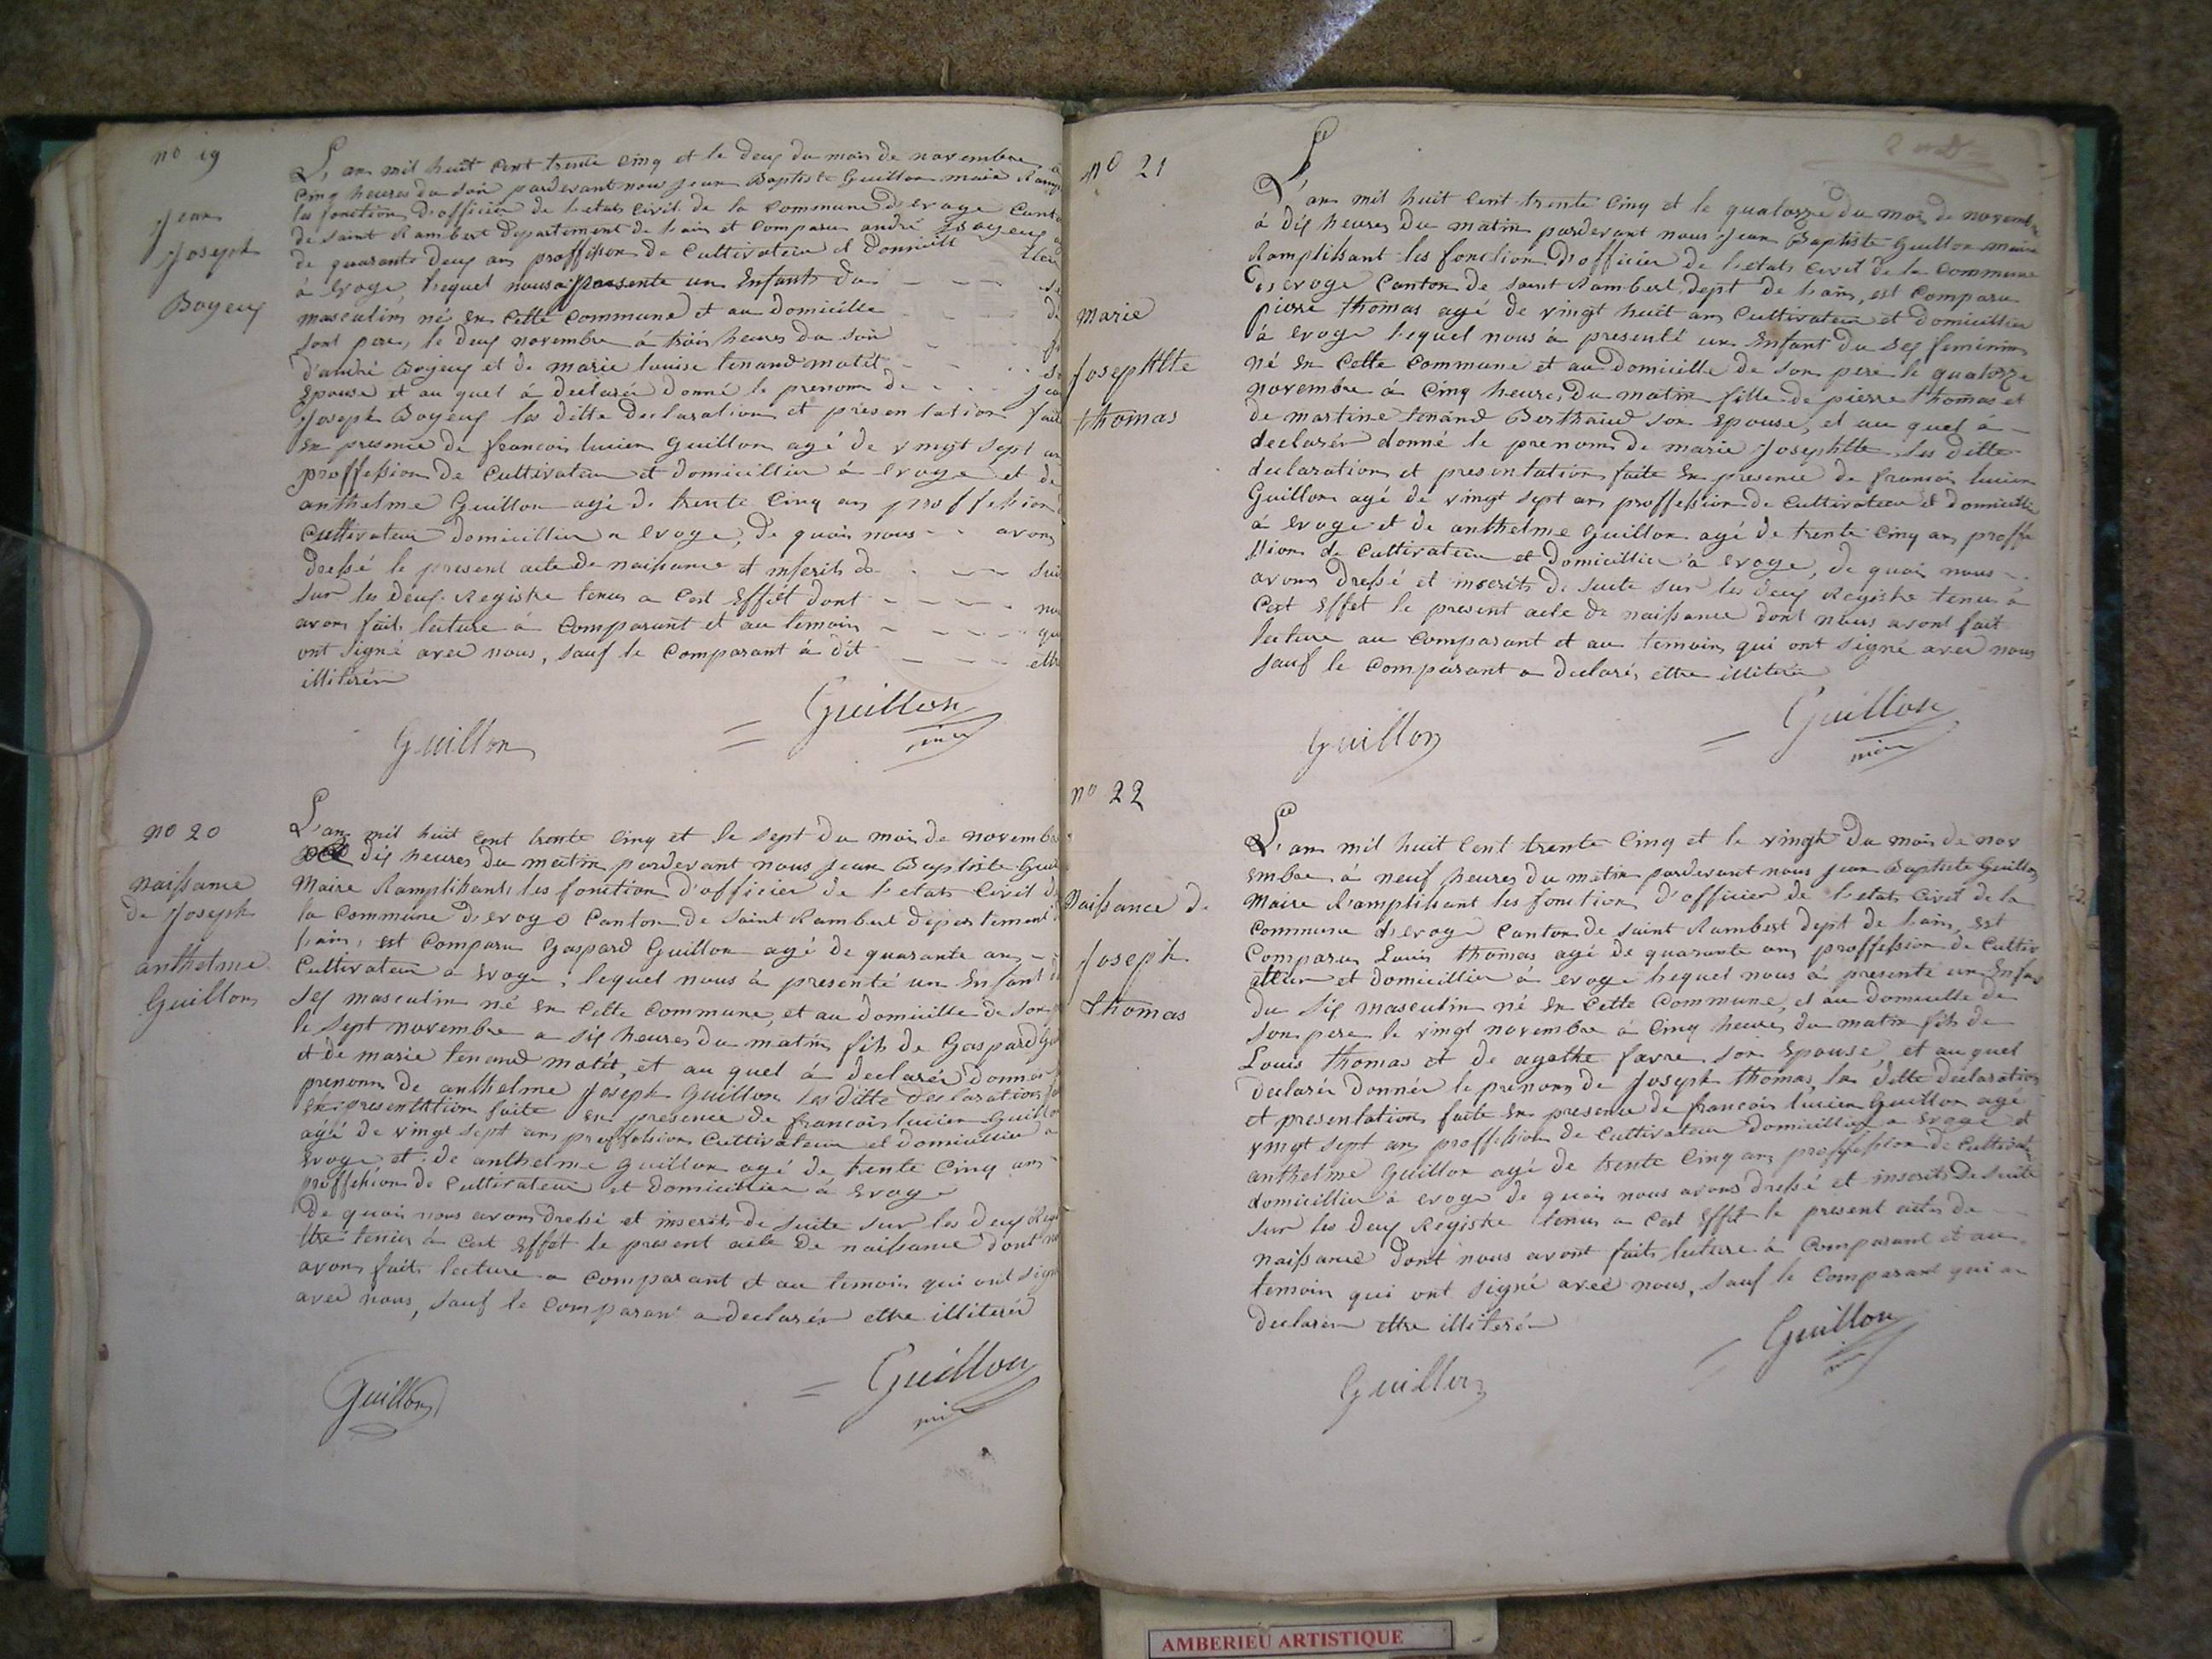 no 19
Jean
Joseph
Bogeuf
L'an mil huit cent trente cinq et le deux du mois de novembre à
cinq heures du soir pardevant nous jean Baptiste Guillon maire Ramp
les fonction d'officier de l'etats civil de la commune d'evoge Canto
de saint Rambert departement de l'ain et comparu andré Bogeuf a
de quarante deux ans proffession de Cultivateur et domicill
à evoge lequel nous a presente un Enfants du - - - se
masculin né en cette commune et au domicille - - - de
sont pere, le deux novembre à trois heures du soir
d'andré Bogeuf et de marie louise tenand matét - - - s
Epouse et au quel à declarér donné le prenom de - - - jea
Joseph Bogeuf les ditte declaration et presentation fait
en presence de francois lucien Guillon agé de vingt sept an
proffession de Cultivateur et domicillier à evoge et de
anthelme Guillon agé de trente cinq ans proffession
cultivateur domicillier a evoge, de quoi nous - - avons
dressé le present acte de naissance et inscrits de - - - sui
sur les deux Registre tenus a cest Effét dont - - - - nou
avons faits lecture à comparant et au temoin - - - - qui
ont signé avec nous, sauf le comparant à dit - - - ettr
illiterér
Guillon = Guillon
maire
no 20
naissance
de Joseph
anthelme
Guillon
L'an mil huit cent trente cinq et le sept du mois de novembre
dix heures du matin pardevant nous jean Baptiste Gui
Maire Ramplissant les fonction d'officier de l'etats civil d
la commune d'evoge canton de saint Rambert departement
l'ain, est comparu Gaspard Guillon agé de quarante ans -
Cultivateur a evoge, lequel nous à presenté un Enfant d
sex masculin né en cette commune, et au domicille de son
le sept novembre a six heures du matin fils de Gaspard G
et de marie tenand matét, et au quel à declarér donnér
prenom de anthelme Joseph Guillon les ditte declaration
en presentation faite en presence de francois lucien Guillon
agé de vingt sept ans proffession Cultivateur et domicillier a
evoge et de anthelme Guillon agé de trente cinq ans
proffession de Cultivateur et domicillier à evoge
De quoi nous avons dressé et inscrits de suite sur les deux Regi
ttre tenus à cest Effet le present acte de naissance dont no
avons faits lecture a comparant et au temoin qui ont sign
avec nous, sauf le comparant a declarér ettre illiterér
Guillon = Guillon
maire
no 21
Marie
Josephtte
thomas
L'an mil huit cent trente cinq et le quatorze du mois de novembre
à dix heures du matin pardevant nous Jean Baptiste Guillon maire
Ramplissant les fonction d'officier de l'etats civil de la commune
D'evoge Canton de saint Rambert dept de l'ain, est comparu
pierre thomas agé de vingt huit ans Cultivateur et domicillier
à evoge lequel nous à presenté un Enfant du sex feminin
né en cette commune et au domicille de son pere le quatorze
novembre à cinq heures du matin fille de pierre thomas et
de martine tenand Berthaud son Epouse, et au quel à -
declarér donné le prenom de marie Josephtte les ditte
declaration et presentation faite en presence de francois lucien
Guillon agé de vingt sept ans proffession de cultivateur et domicillie
à evoge et de anthelme Guillon agé de trente cinq ans proffe
ssion de Cultivateur et domicillier à evoge, de quoi nous -
avons dressé et inscrits de suite sur les deux Registre tenus à
cest Effet le present acte de naissance dont nous avont fait
lecture au comparant et au temoin qui ont signé avec nous
sauf le comparant a declarér ettre illiterér
Guillon = Guillon
maire
no 22
Naissance de
Joseph
thomas
L'an mil huit cent trente cinq et le vingt du mois de nov
embre à neuf heures du matin pardevant nous jean Baptiste Guillon
Maire Ramplissant les fonction d'officier de l'etats civil de la
commune d'evoge canton de saint Rambert dept de l'ain, est
comparu Louis thomas agé de quarante ans proffession de Cultiv
ateur et domicillier à evoge lequel nous à presenté un Enfan
du six masculin né en cette commune, et au domicille de
son pere le vingt novembre à cinq heures du matin fils de
Louis thomas et de agathe favre son Epouse, et au quel
declarér donnér le prenom de Joseph thomas, les ditte declaration
et presentation faite en presence de francois lucien Guillon agé
vingt sept ans proffession de cultivateur domicillier a evoge et
anthelme Guillon agé de trente cinq ans proffession de cultivat
domicillier à evoge de quoi nous avons dressé et inscrits de suite
sur les deux Registre tenus a cest Effet le present acte de
naissance dont nous avont faits lecture à comparant et au
temoin qui ont signé avec nous, sauf le comparant qui a
declarér ettre illiterér
Guillon = Guillon
maire
AMBERIEU ARTISTIQUE